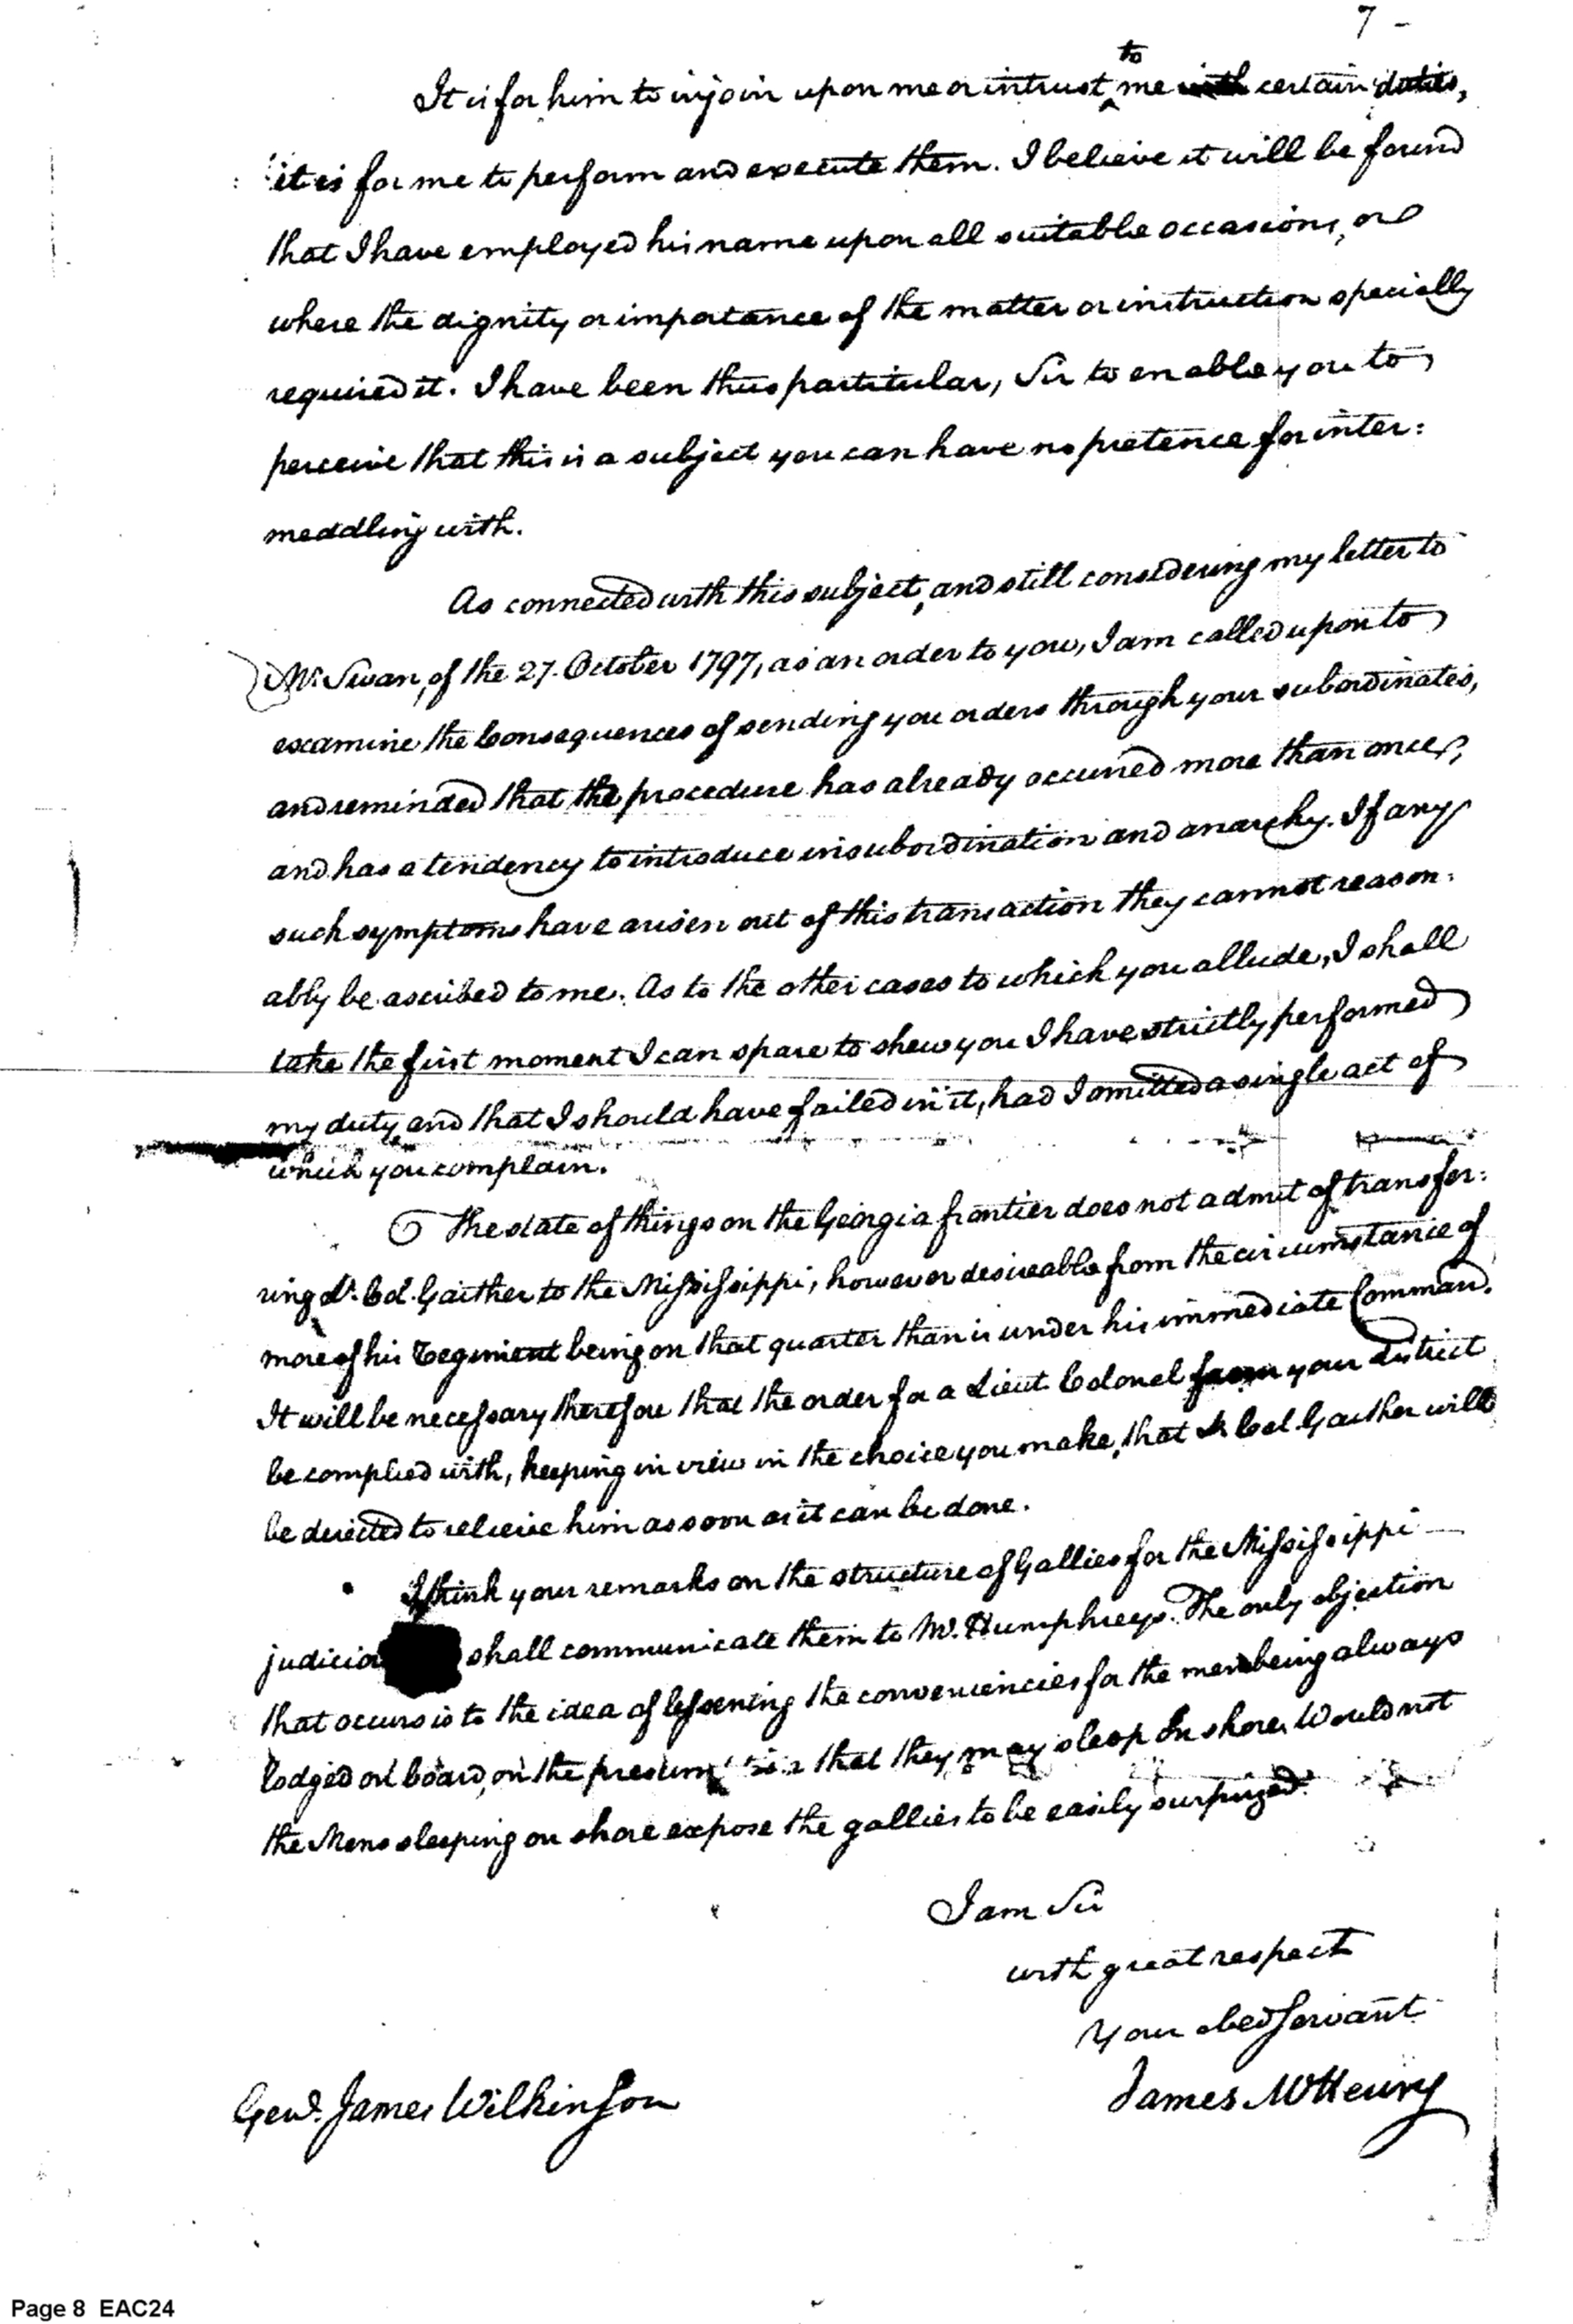 7 -
to
It is for him to injoin upon me or intrust ^ me with certain duties,
it is for me to perform and execute them. I believe it will be found
that I have employed his name upon all suitable occasions, or
where the dignity or importance of the matter or instruction specially
required it. I have been thus particular, Sir to enable you to
perceive that this is a subject you can have no pretence for inter:
meddling with.
As connected with this subject, and still considering my letter to
Mr. Swan, of the 27. October 1797, as an order to you, I am called upon to
examine the Consequences of sending you orders through your subordinates,
and reminded that the procedure has already occurred more than once,
and has a tendency to introduce insubordination and anarchy. If any
such symptoms have arisen out of this transaction they cannot reason:
ably be ascribed to me. As to the other cases to which you allude, I shall
take the first moment I can spare to shew you I have strictly performed
my duty, and that I should have failed in it, had I omitted a single act of
which you complain.
The state of things on the Georgia frontier does not admit of transfer:
ring Lt. Col. Gaither to the Mississippi, however desireable from the circumstance of
more of his Regiment being on that quarter than is under his immediate Command.
It will be necessary therefore that the order for a Lieut. Colonel from your district
be complied with, keeping in view in the choice you make, that Lt Col Gaither will
be directed to relieve him as soon as it can be done.
I think your remarks on the structure of Gallies for the Mississippi
judicio shall communicate them to Mr. Humphreys. The only objection
that occurs is to the idea of lessening the conveniencies for the men being always
lodged on board, on the that they may sleep on shore. Would not
the Mens sleeping on shore expose the gallies to be easily surprized.
I am Sir
with great respect
Your obed Servant
James McHenry
Genl. James Wilkinson
Page 8 EAC24